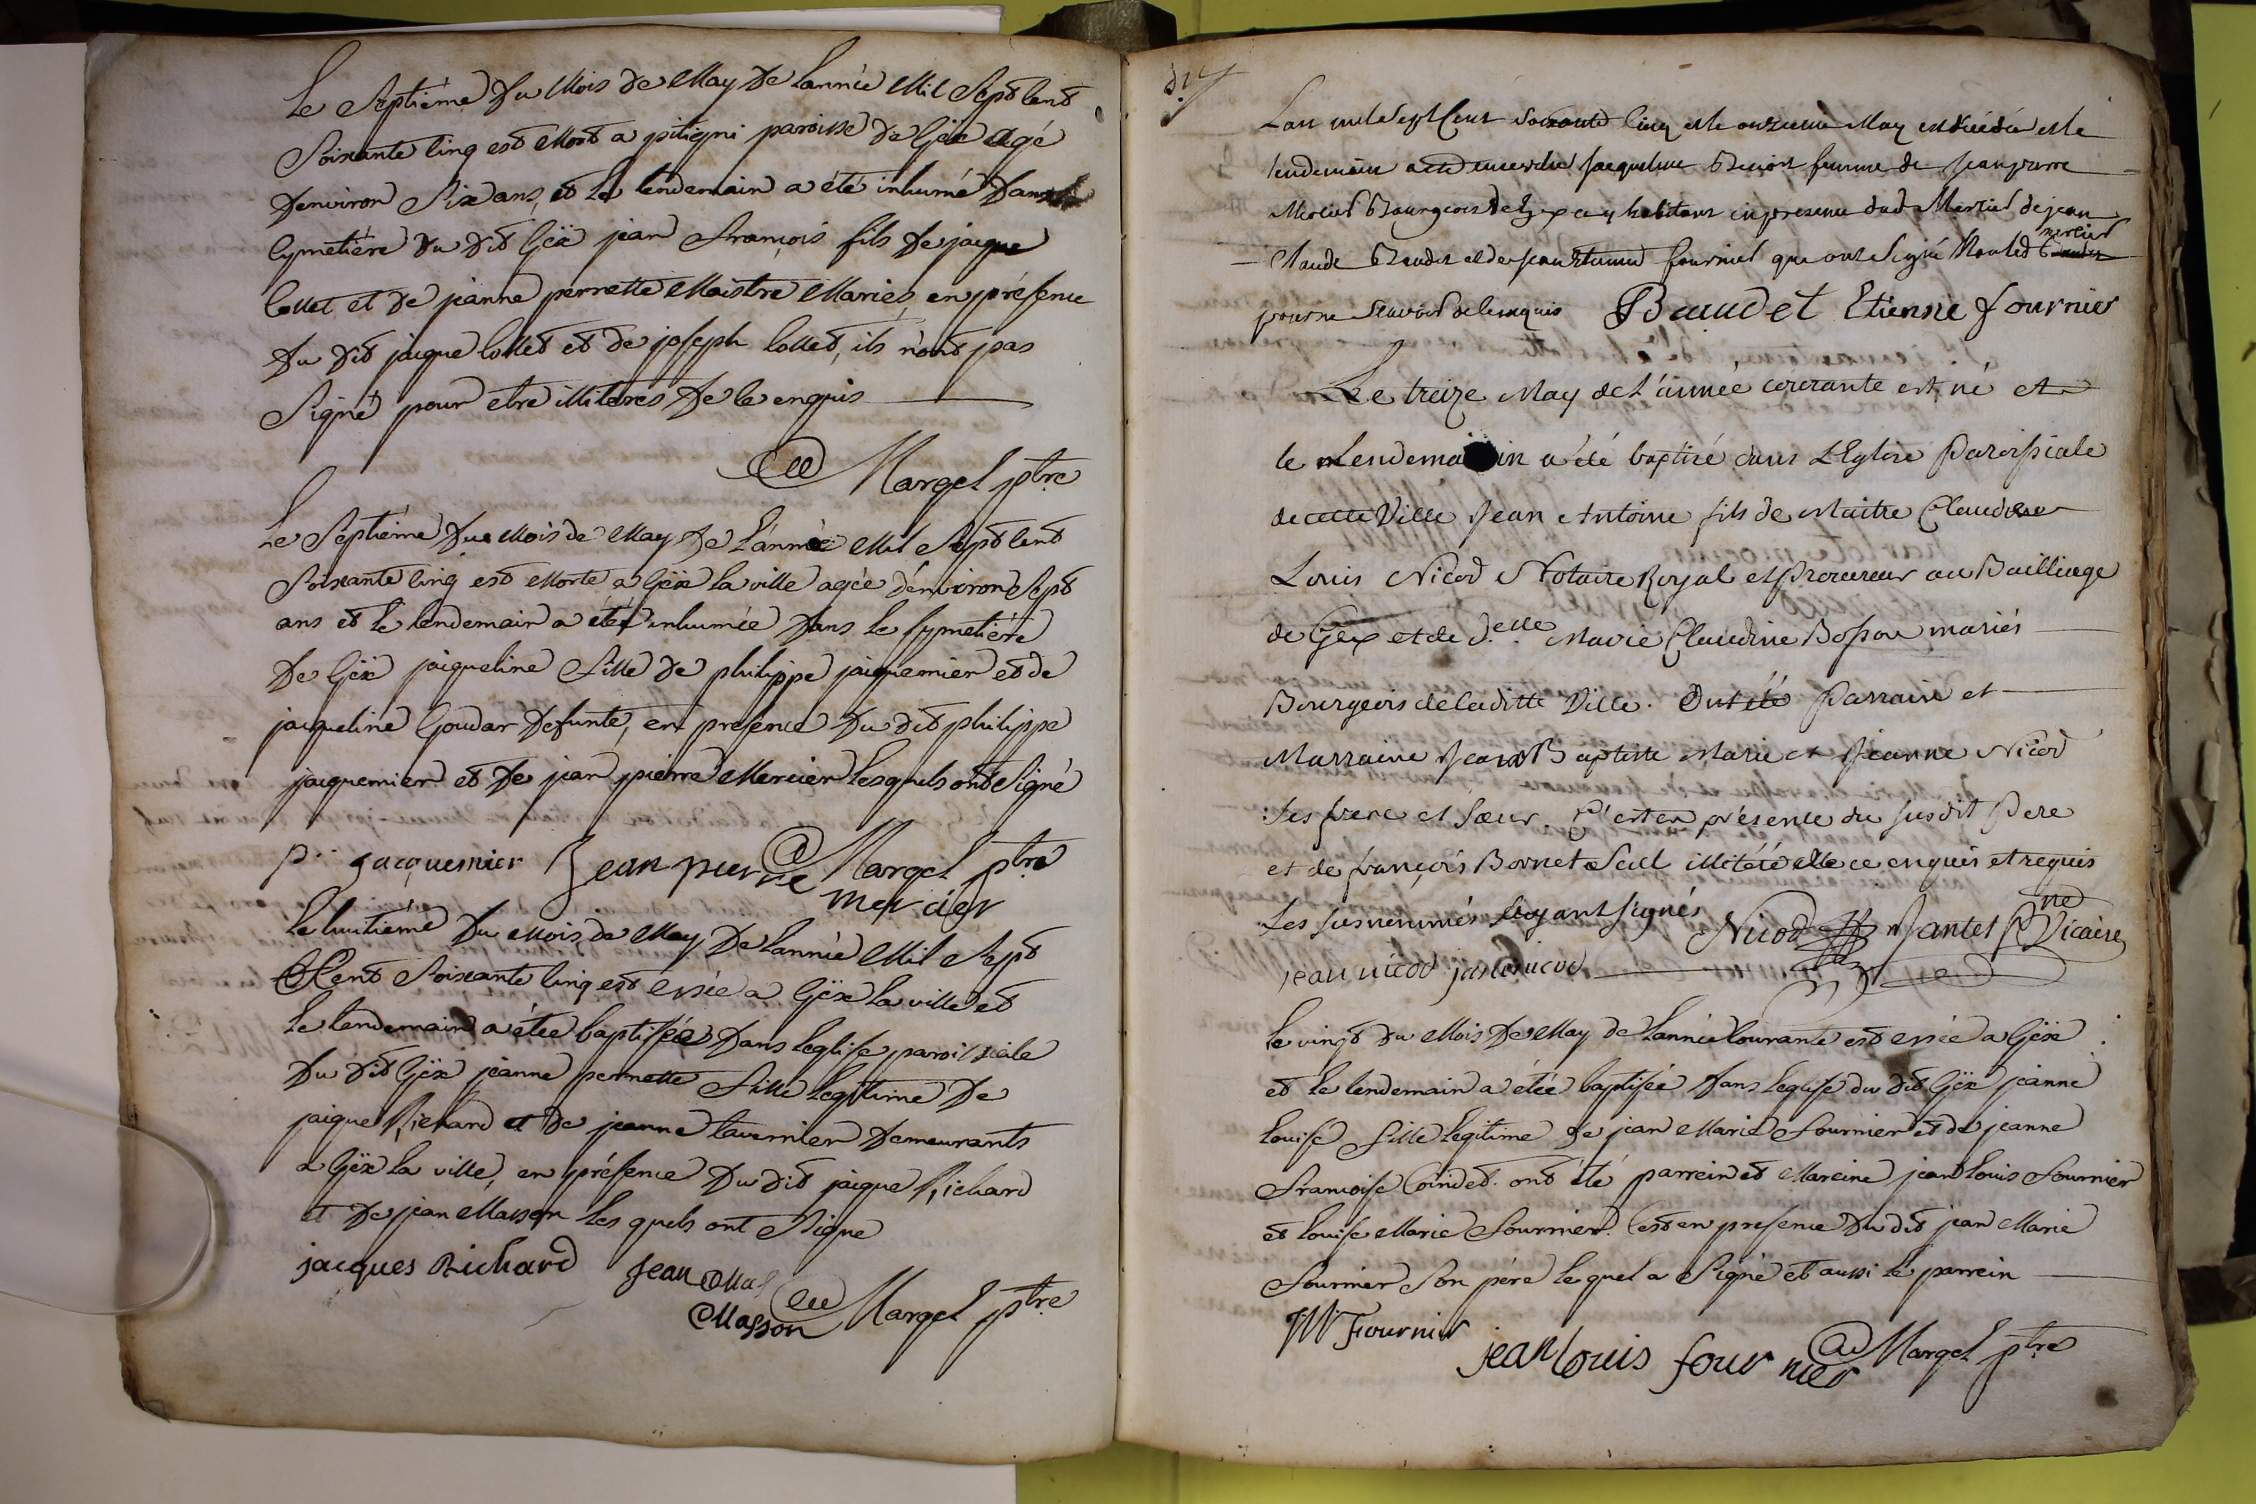 Le Septiéme Du Mois de May De Lannée Mil Sept Cent
Soixante Cinq est Mort a pitigni paroisse De Gëx agé
Denviron Six ans, et Le lendemain a été inhumé Dans le
Cymetiére Du Dit Gëx jean François fils De jacque
Collet et De jeanne pernette Maistre Mariés, en présence
Du Dit jacque Collet et De joseph Collet, ils n'ont pas
Signé pour etre illiteres De ce enquis
Margel ptre
Le Septiéme Du Mois de May De L'année Mil Sept Cent
Soixante Cinq est Morte a Gëx la ville agée d'environ Sept
ans et Le lendemain a étée inhumée Dans Le Cymetiére
De Gëx jaiqueline Fille De philippe jaiquemier et de
jacqueline Goudar Defunte, en présence Du Dit philippe
jacquemier et De jean pierre Mercier Lesquels ont Signé
p. Jacquemier Jean pierre mercier Margel ptre
Le huitiéme Du Mois de May De Lannée Mil Sept
Cent Soixante Cinq est née a Gëx La ville et
Le lendemain a étée baptisée Dans Leglise paroissiale
Du Dit Gëx jeanne pernette Fille Legitime De
jaique Richard et De jeanne tavernier Demeurants
a Gëx La ville, en présence Du Dit jaique Richard
et De jean Masson Les quels ont Signe
jacques Richard Jean Mas
Masson Margel ptre
Lan mil Sept Cent Soixante Cinq et le onzieme May est decedée et le
lendemain a été enterrée Jaqueline Benoit femme de Jean pierre
Mercier Bourgeois de Gex et y habitant en presence dud. Mercier de jean
Claude Baudet et de Jean Etienne fournier qui ont Signé Non led. mercier
pour ne Scavoir de ce enquis Baudet Etienne fournier
Le treize May de L'année courante est né et
le Lendemain a été baptisé dans L'Eglise Paroissiale
de cette Ville Jean Antoine fils de Maitre Claude
Louis Nicod Notaire Royal et Procureur au Bailliage
de Gex et de D.elle Marie Claudine Bosson mariés
Bourgeois de laditte Ville. Ont été Parrain et
Marraine Jean Baptiste Marie et Jeanne Nicod
ses frere et soeur. C'est en présence du susdit Pere
et de françois Bornet Seul illitéré de ce enquis et requis
Les susnommés ayant signés Nicod Jantet P. Vicaire
jean nicod jane nicod
Le vingt Du Mois De May de Lannée Courante est née a Gëx
et Le lendemain a étée baptisée Dans Léglise du dit Gëx jeanne
Louise Fille Legitime De jean Marie Fournier et de jeanne
Francoise Coindet. ont été parrein et Mareine jean Louis Fournier
et Louise Marie Fournier. C'est en présence Du dit jean Marie
Fournier Son pére Le quel a Signé et aussi Le parrein
JM Fournier jean Louis fournier Margel ptre